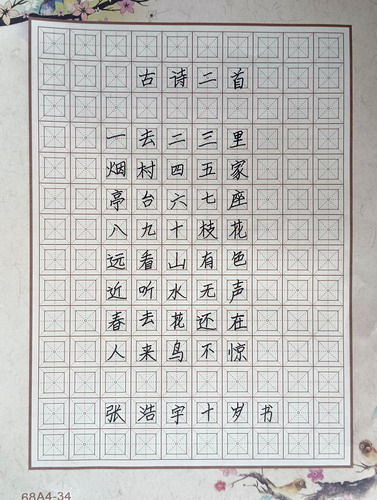 古诗二首
一去二三里
烟村四五家
亭台六七座
八九十枝花
远看山有色
近听水无声
春去花还在
人来鸟不惊
张浩宇十岁书
68A4-34